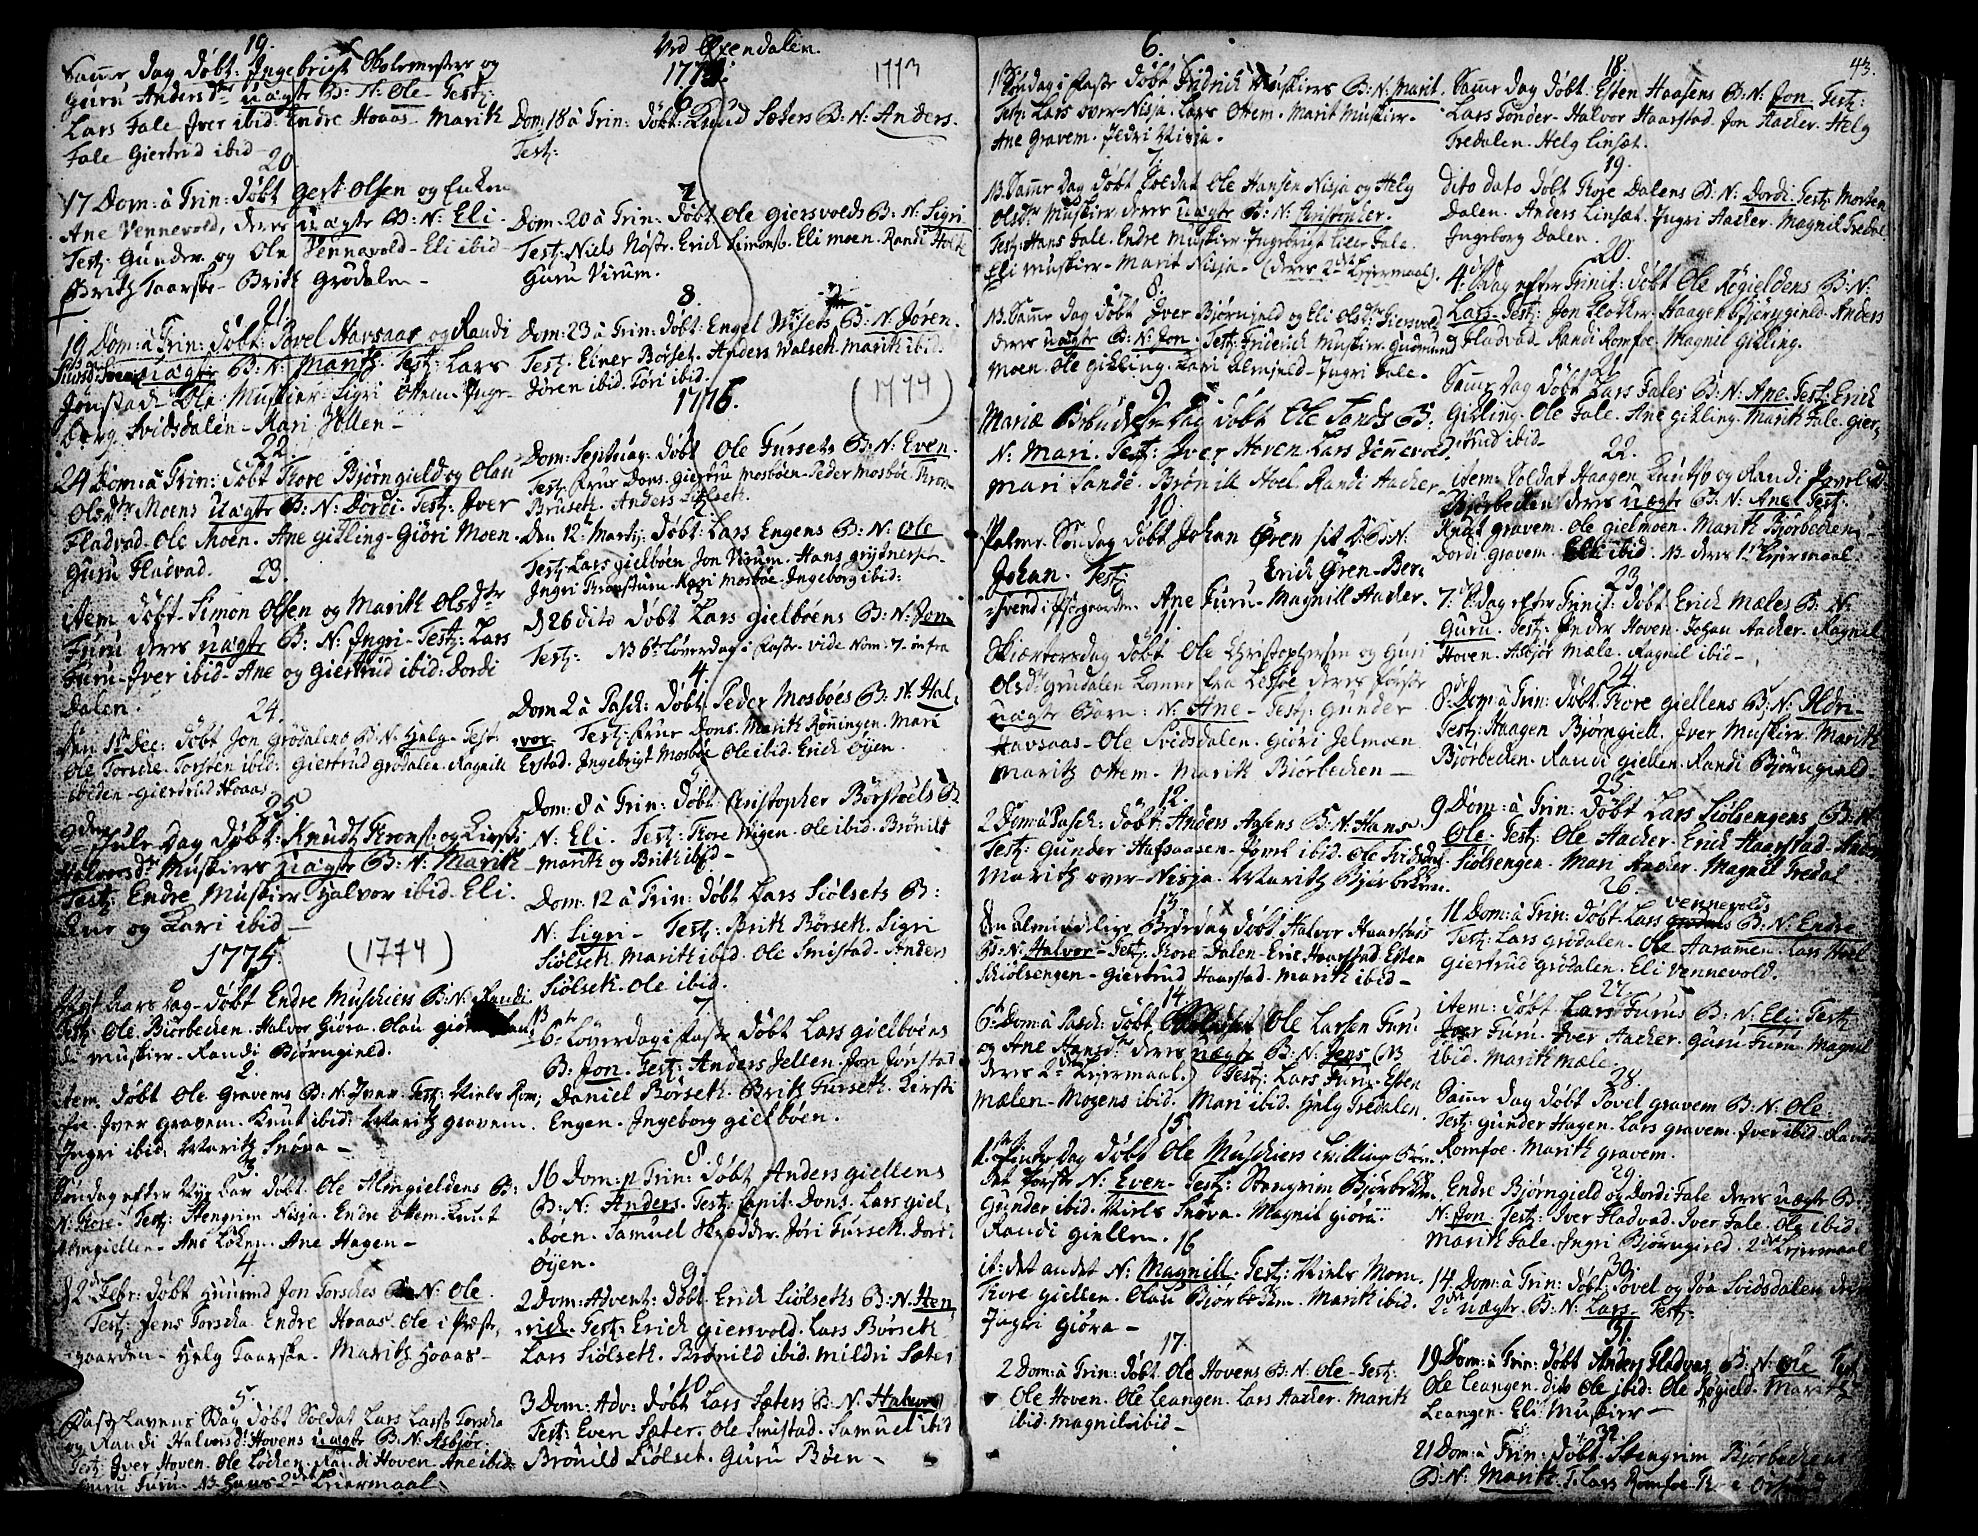 19.
Samme dag døbt. Ingebrigt Skolemester og
Guru Andersdtr uægte B: N: Ole. Test:
Lars Fale. Iver ibid. Endre Hoaas. Marith
Fale Giertrud ibid.
20.
17 Dom: à Trin: døbt Gest Olsen og Enken
Ane Vennevold, deres uægte B: N: Eli.
Test: Gunder og Ole Vennevold. Eli ibid
Brith Taarske. Brith Grødalen.
21.
19 Dom: à Trin: døbt Povel Havsaas og Randi
uægte B: N: Marith. Test: Lars
Jønstad. Ole Muskier. Sigri Ottem. Inge-
borg Svidsdalen. Kari Jellen.
22.
24 Dom: à Trin: døbt Thore Biørngield og Olau
Olsdtr Moens uægte B: N: Dordi. Test: Iver
Fladvad. Ole Moen. Ane Gikling. Giøri Moen.
Guru Fladvad.
23.
Item døbt Simon Olsen og Marith Olsdtr
Furu deres uægte B: N: Ingri. Test: Lars
Furu. Iver ibid. Ane og Giertrud ibid: Dordi
Dalen.
24.
Den 1ste Dec: døbt Jon Grødalens B: N: Helg. Test:
Ole Torske. Torsten ibid: Giertrud Grødalen. Ragnill
ibiden. Giertrud Hoaas.
25
2den Jule Dag døbt: Knudt Thronss: og Kirsti
Halvorsdtr Muskiers uægte B: N: Marith
Test: Endre Muskier. Halvor ibid. Eli
og Kari ibid.
1775. (1774)
Nyt Aars Dag døbt Endre Muskiers B: N: Randi
Test: Ole Biørbechen. Halvor Giøra. Olau Giøra. Ran-
di Muskier. Randi Biørngield.
2.
Item døbt Ole Gravems B: N: Iver. Test: Niels Rom-
foe. Iver Gravem. Knut ibid: Maritz Gravem.
Ingri ibid. Maritz Snøva.
3.
Søndag efter Nyt Aar døbt Ole Almgieldens B:
N: Thore. Test: Stengrim Nisja. Endre Ottem. Knut
Almgiellen. Ane Løken. Ane Hagen.
4
d 2 Febr: døbt Jon Torskes B: N: Ole.
Test: Jens Torska. Endre Hoaas. Ole i Præste-
gaarden. Helg Taarske. Maritz Hoaas.
5.
Fastelavens Søndag døbt Soldat Lars Larss: Torska
og Randi Halvorsd: Hovens uægte B: N: Asbjør.
Test: Iver Hoven. Ole Løcken. Randi Hoven. Ane ibid.
Guru Furu. NB. Hans 2det Leiermaal
Ved Øxendalen.
1774. 1773
6
Dom: 18 à Trin: døbt: Knud Sæters B: N: Anders.
Test:
7
Dom: 20 à Trin: døbt Ole Giersvolds B: N: Sigri
Test: Niels Nøste. Erich Simonss. Eli Moen. Randi Holte
Guru Virum.
8.
Dom: 23 à Trin: døbt: Engel Nisets B: N: Jøren.
Test: Einer Børset. Anders Walseth. Marith ibid.
Jøren ibid. Jøri ibid.
1775. (1774)
1
Dom: Septuag: døbt Ole Fursets B: N: Even.
Test: Frur Dons. Giertru Mosbøen. Peder Mosbøe. Thron
Bruseth. Anders Siølseth.
2
Den 12te Martz: døbt: Lars Engens B: N: Ole
Test: Lars Gielbøen. Jon Virum. Hans Grydneset
Ingri Thronstum. Kari Mosbøe. Ingeborg ibid:
d 26 dito døbt Lars Gielbøens B: N: Jon.
Test: NB 6te Løverdag i Faste vide Nom: 7. infra
4.
Dom 2 à Pasch: døbt Peder Mosbøes B: N: Hal-
vor. Test: Frur Dons. Marith Rønningen. Mari
Erstad. Ingebrigt Mosbøe. Ole ibid. Erich Øyen.
5
Dom: 8 à Trin: døbt Christopher Børstøels B:
N: Eli. Test: Thore Wigen. Ole ibid. Brønild
Marith og Brith ibid.
6
Dom: 12 à Trin: døbt Lars Siølsets B:
N: Sigri. Test: Brith Børseth. Sigri
Siølseth. Marith ibid. Ole Smistad. Anders
Siølseth. Ole ibid.
7
NB
6te Løverdag i Faste døbt Lars Gielbøens
B: Jon. Test: Anders Jellen. Jon Jønstad
Daniel Børseth. Brith Furseth. Kirsti
Engen. Ingeborg Gielbøen.
8
16 Dom: p Trin: døbt Anders Giellens
B: N: Anders. Test: Capit: Dons. Lars Giel-
bøen. Samuel Skredder. Jøri Furseth. Dordi
Øyen.
9.
2 Dom: Advent: døbt Erich Siølseths B: N: Hen
rich. Test: Erich Giersvold. Lars Børseth
Lars Siølseth. Brønild ibid. Mildri Sæter
10
3 Dom: Adv: døbt Lars Sæters B: N: Halvor
Test: Even Sæter. Ole Smistad. Samuel ibid
Brønild Siølset. Guru Bøen.
6.
1 Søndag i Faste døbt Fridrich Muskiers B: N: Marit.
Test: Lars Over-Nisja. Lars Ottem. Marit Muskier.
Ane Gravem. Sedri Nisja.
7.
NB. Samme Dag døbt Soldat Ole Hansen Nisja og Helg
Olsdtr Muskier deres uægte B: N: Christopher.
Test: Hans Fale. Endre Muskier. Ingebrigt Lille Fale.
Eli Muskier. Marit Nisja. (deres 2det Leiermaal).
8.
NB. Samme Dag døbt Iver Biørngield og Eli Olsdtr Giersvold
deres uægte B: N: Jon. Test: Friderich Muskier. Gudmund
Moen. Ole Gikling. Kari Elmsjeld. Ingri Fale.
9
Mariæ Bebudelses Dag døbt Ole Sands B:
N: Mari. Test: Iver Hoven. Lars Vennevold.
Mari Sande. Brønild Hoel. Randi Aacker.
10.
Palme Søndag døbt Johan Øren sit B: N:
Johan. Test: Erich Øren. Ber-
svend i Præstegaarden. Ane Furu. Magnill Aacker.
11.
Skiærtorsdag døbt Ole Christophersen og Guri
Olsdtr Grudalen komne fra Lesjøe deres første
uægte Barn: N: Ane. Test: Gunder
Havsaas. Ole Svidsdalen. Giøri Jelmoen
Maritz Ottem. Marith Biørbechen
12.
2 Dom: à Pasch: døbt: Anders Aasens B: N: Hans.
Test: Gunder Hafsaasen. Povel ibid. Ole Svidsdal
Maritz Over-Nisja. Maritz Biørbechen.
13
Den Almindelige Bededag døbt Halvor Haarstads
B: N: Halvor. Test: Thore Dalen. Eric Haarstad. Esten
Skiølsengen. Giertrud Haarstad. Marith ibid
14
6te Dom: à Pasch: døbt Soldat Ole Larsen Furu
og Ane Hansdtr deres uægte B: N: Jens (NB
deres 2det Leiermaal.) Test: Lars Furu. Esten
Mælen. Mogens ibid. Mari ibid. Helg Fredalen.
15
1ste Pintze Dag døbt Ole Muskiers tvilling Børn.
det første N: Even. Test: Stengrim Biørbechen
Gunder ibid. Niels Snøva. Magnil Giøra
Randi Giellen.
16
it: det andet N: Magnill. Test: Niels Mom.
Thore Giellen. Olau Biørbechen. Marith ibid.
Ingri Giøra
17.
2 Dom: à Trin: døbt Ole Hovens B: N: Ole. Test:
Ole Hoven. Ole Leangen. Lars Aacker. Marith
ibid. Magnil ibid
43.
18.
Samme Dag døbt. Esten Haasens B: N: Jon. Test:
Lars Tønder. Halvor Haarstad. Jon Aacker. Helg
Fredalen. Helg Linsæt.
19.
dito dato døbt Thore Dalens B: N: Dordi. Test: Morten
Dalen. Anders Linsæt. Ingri Aacker. Magnil Fredal
Ingeborg Dalen.
20.
4de Sdag efter Trinit: døbt Ole Røgieldens B: N:
Lars. Test: Jon Flother. Haagen Biørngield. Anders
Fladvad. Randi Romfoe. Magnil Gikling.
21.
Samme Dag døbt Lars Fales B: N: Ane. Test: Erich
Gikling. Ole Fale. Ane Gikling. Marith Fale. Gier-
trud ibid.
22.
Item Soldat Haagen Knutss og Randi Povelsd
Biørbechen deres uægte B: N: Ane. Test:
Knut Gravem. Ole Gielmoen. Marith Biørbechen
Dordi Gravem. Elli ibid. NB deres 1ste Leiermaal.
23
7de Sdag efter Trinit: døbt Erich Mæles B: N:
Guru. Test: Peder Hoven. Johan Aacker. Ragnil
Hoven. Asbjør Mæle. Ragnil ibid
24
8de Dom: à Trin: døbt. Thore Giellens B: N: Ildri
Test: Haagen Biørngiell. Iver Muskier. Marith
Biørbechen. Randi Giellen. Randi Biørngield
25
9 Dom: à Trin: døbt Lars Siølsengens B: N:
Ole. Test: Ole Aacker. Erich Haarstad.
Siølsengen. Mari Aacker. Magnil Fredal
26
11 Dom: à Trin: døbt Lars Vennevolds B: N: Endre
Test: Lars Grødalen. Ole Haramen. Lars Hoel
Giertrud Grødalen. Eli Vennevold.
27
Item: døbt Lars Furus B: N: Eli. Test:
Peder Furu. Iver Aacker. Guru Furu. Magnil
ibid. Marith Mæle.
28
Samme Dag døbt Povel Gravem B: N: Ole
Test: Gunder Hagen. Lars Gravem. Iver ibid. Randi
Romfoe. Marith Gravem.
29
Endre Biørngield og Dordi Fale deres uægte B:
N: Jon. Test: Iver Fladvad. Iver Fale. Ole ibid.
Marith Fale. Ingri Biørngield. 2det Leiermaal
30.
14 Dom: à Trin: døbt Povel og Svidsdalen deres
2det uægte. B: N: Lars. Test:
31.
19 Dom: à Trin: døbt Anders Fladvads B: N: Ole Test:
Ole Leangen. dito Ole ibid: Ole Røgield. Marith
Leangen. Eli Muskier
32
21 Dom: à Trin: døbt Stengrim Biørbechens
B: N: Marith. T: Lars Romfoe.